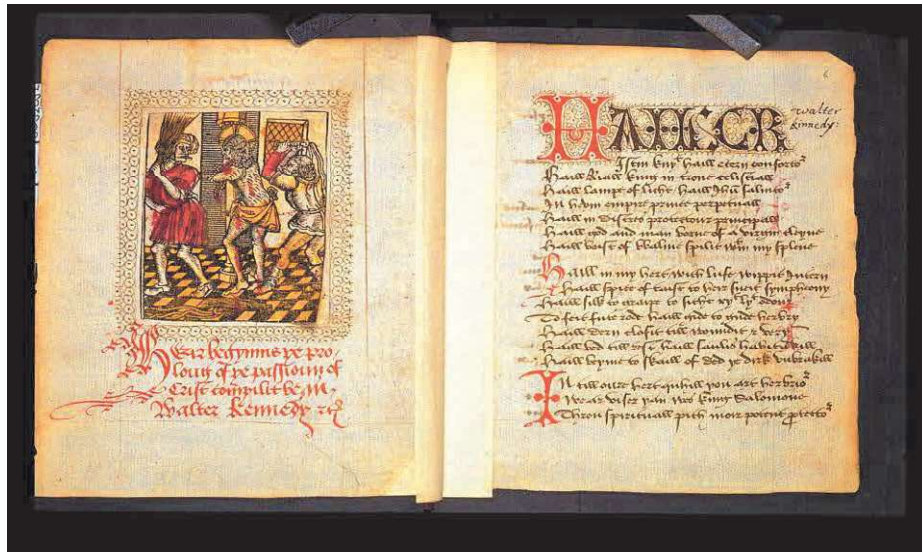 Heir begynnis þe pro
loug of þe passioun of
Crist compilit be M
Walter Kennedy
6
HAILL CR
walter
kennedy:
istin haill etern confort
Haill Riall king in trone celestiall
Haill lampe of licht haill Jhū saluito
In hevin empire prince perpetuall
Haill in distres protectour principall
Haill god and man borne of a virgin cleyne
Haill boist of balme spilit wtin my splene
Haill in my hert with lufe wippit Intern
Haill spice of taist to heir sueit symphony
Haill to graip to sicht
To feit rod haill gide to gude
Haill dern closit till
Haill bid till haill saulis habitakill
Haill of ded þe dirk
In till oure hert quhill þou art
We ar viser þan wes king Salomone
Throu spirituall pith moir potent